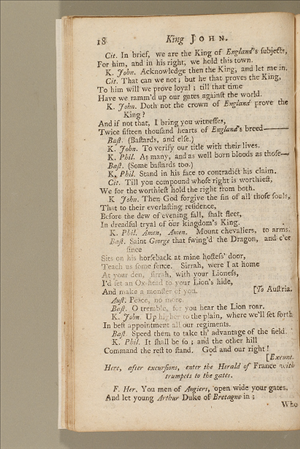 18 King JOHN.
Cit. In brief, we are the King of England's ſubjects,
For him, and in his right, we hold this town.
K. John. Acknowledge then the King, and let me in.
Cit. That can we not; but he that proves the King,
To him will we prove loyal; till that time
Have we ramm'd up our gates againſt the world.
K. John. Doth not the crown of England prove the
King?
And if not that, I bring you witneſſes,
Twice fifteen thouſand hearts of England's breed—
Baſt. (Baſtards, and elſe.)
K. John. To verify our title with their lives.
K. Phil. As many, and as well born bloods as thoſe—
Baſt. (Some baſtards too.)
K. Phil. Stand in his face to contradict his claim.
Cit. Till you compound whoſe right is worthieſt,
We for the worthieſt hold the right from both.
K John. Then God forgive the ſin of all thoſe ſouls,
That to their everlaſting reſidence,
Before the dew of evening fall, ſhall fleet,
In dreadful tryal of our kingdom's King.
K. Phil. Amen, Amen. Mount chevaliers, to arms.
Baſt. Saint George that ſwing'd the Dragon, and e'er
ſince
Sits on his horſeback at mine hoſteſs' door,
Teach us ſome fence. Sirrah, were I at home
At your den, ſirrah, with your Lioneſs,
I'd ſet an Ox-head to your Lion's hide,
And make a monſter of you. [To Auſtria.
Auſt. Peace, no more.
Baſt. O tremble, for you hear the Lion roar.
K. John. Up higher to the plain, where we'll ſet forth
In beſt appointment all our regiments.
Baſt. Speed then to take th' advantage of the field.
K. Phil. It ſhall be ſo; and at the other hill
Command the reſt to ſtand. God and our right!
[Exeunt.
Here, after excurſions, enter the Herald of France with
trumpets to the gates.
F. Her. You men of Angiers, open wide your gates,
And let young Arthur Duke of Bretagne in;
Who